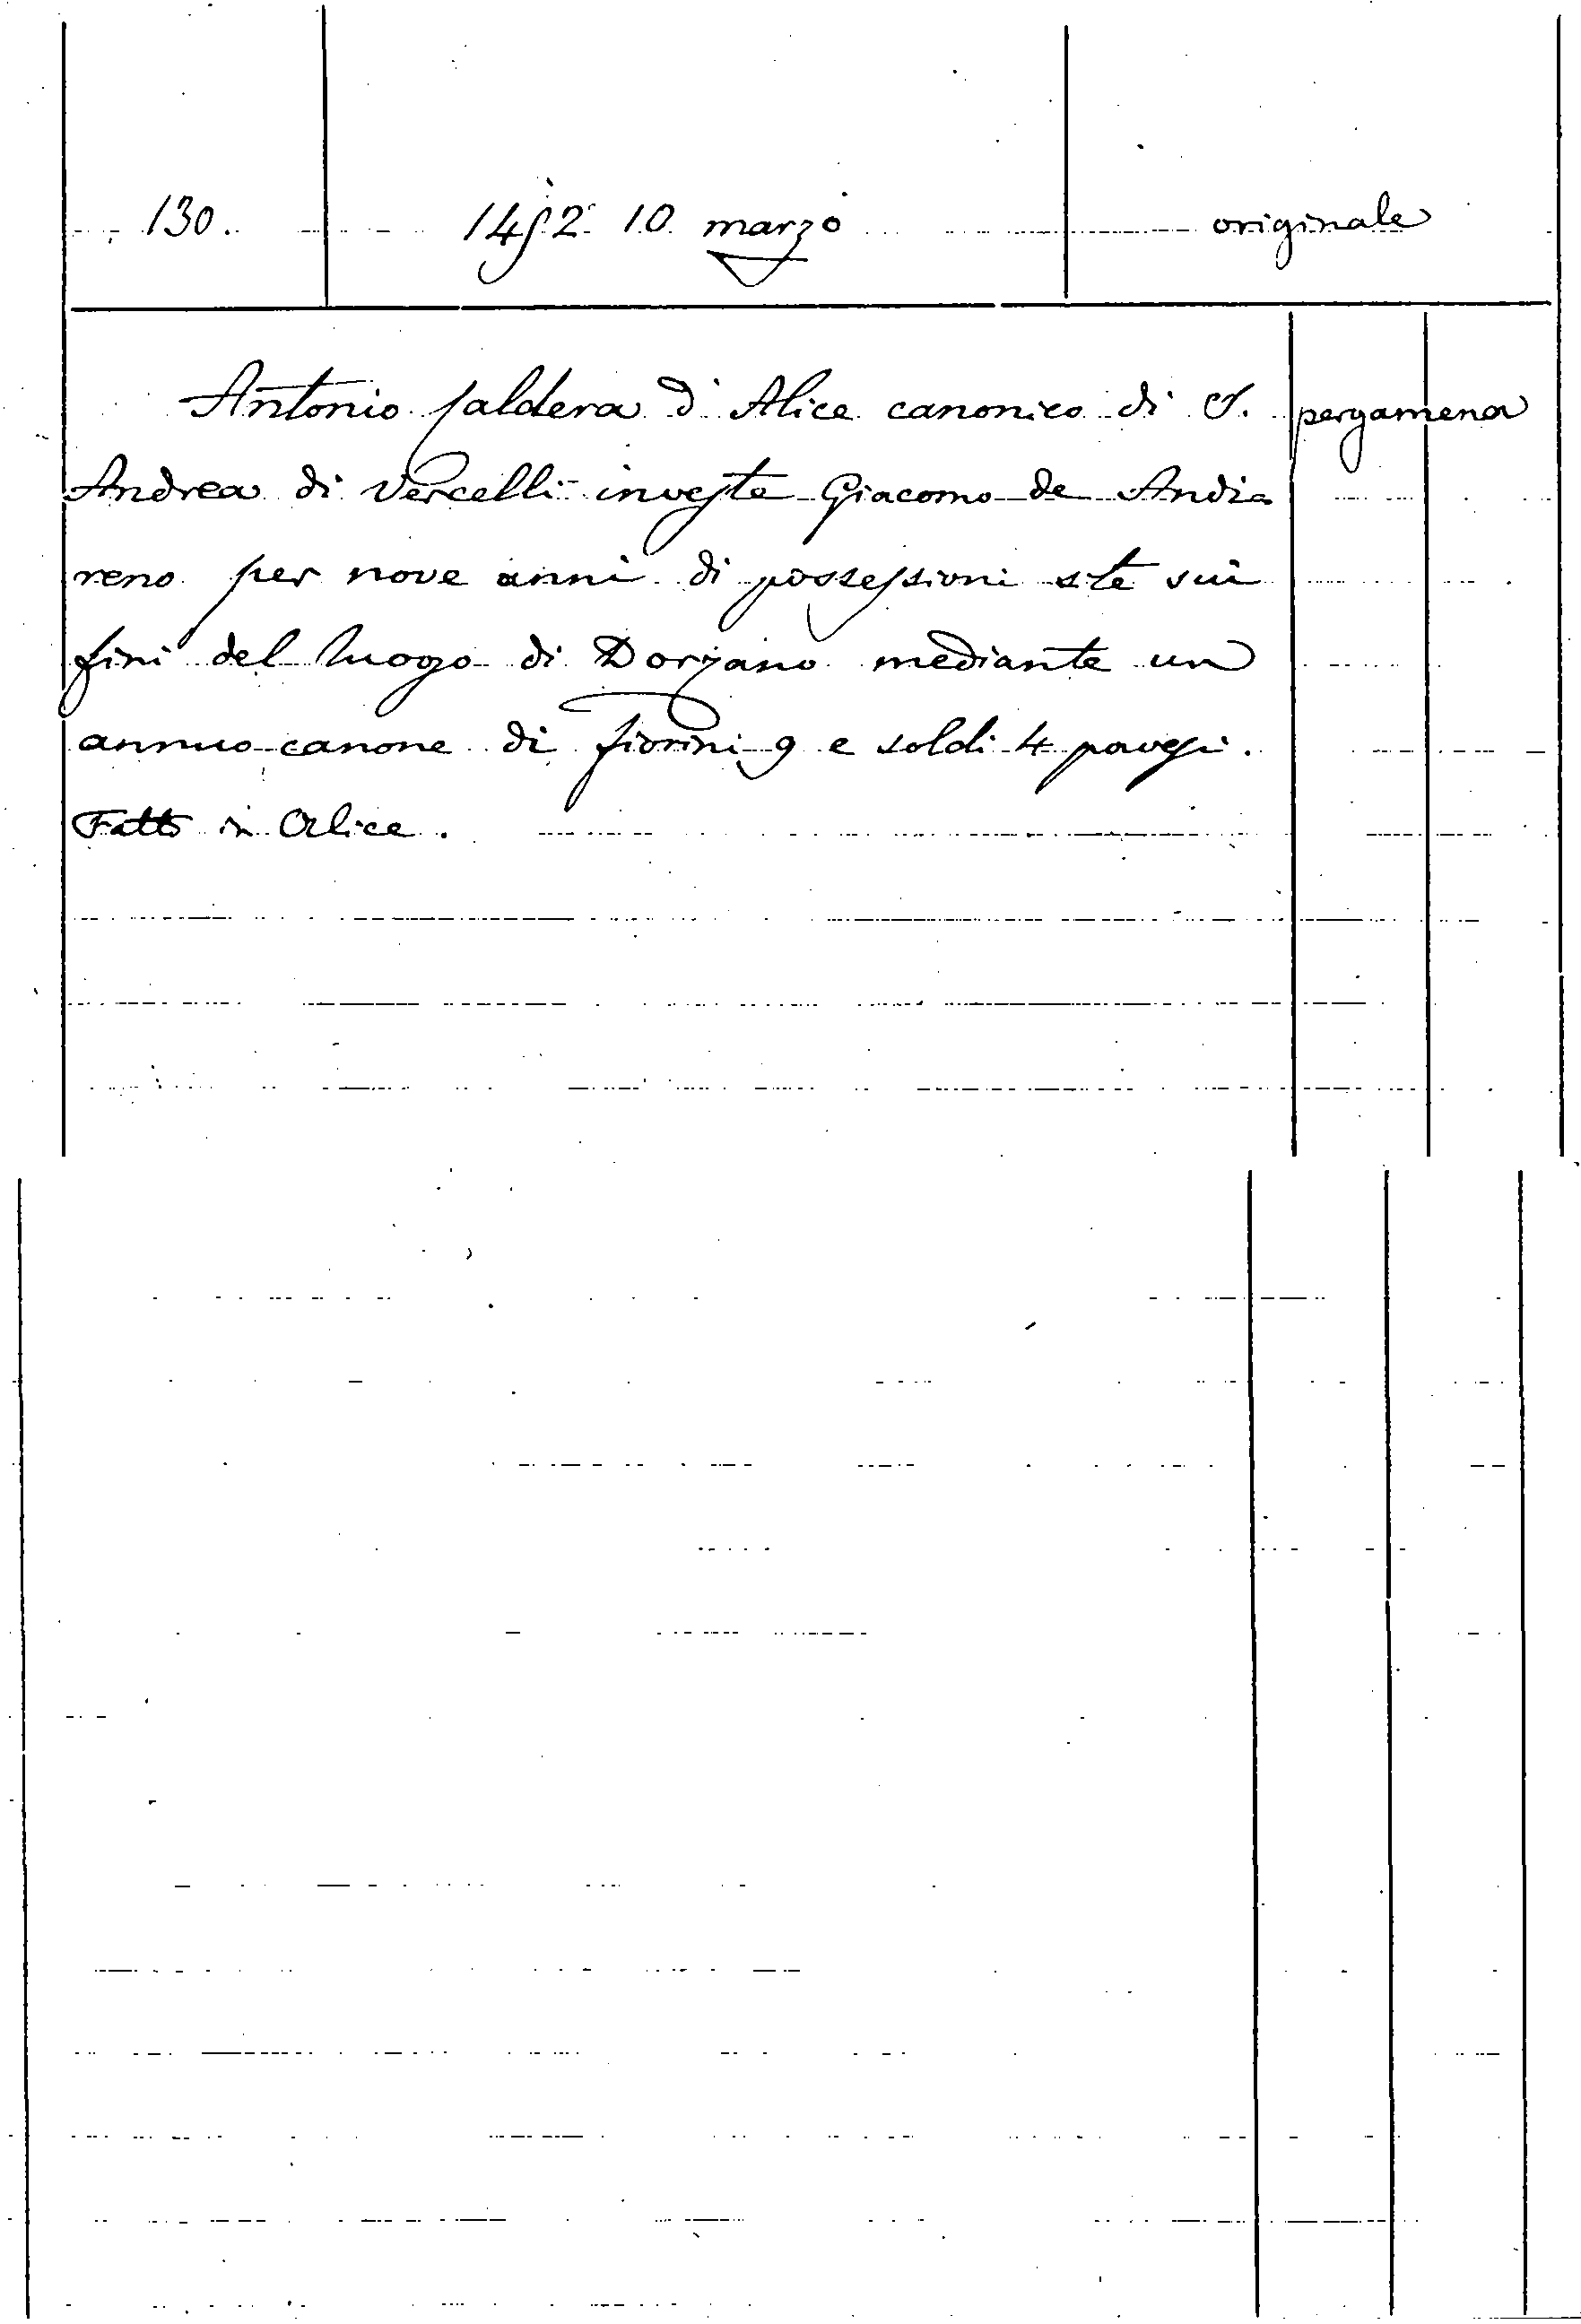 130. 1452 10 marzo originale
Antonio Caldera d'Alice canonico di S. pergamena
Andrea di Vercelli investe Giacomo de Andia
reno per nove anni di possessioni site sui
fini del luogo di Dorzano mediante un
annuo canone di fiorini 9 e soldi 4 pavesi.
Fatto in Alice.